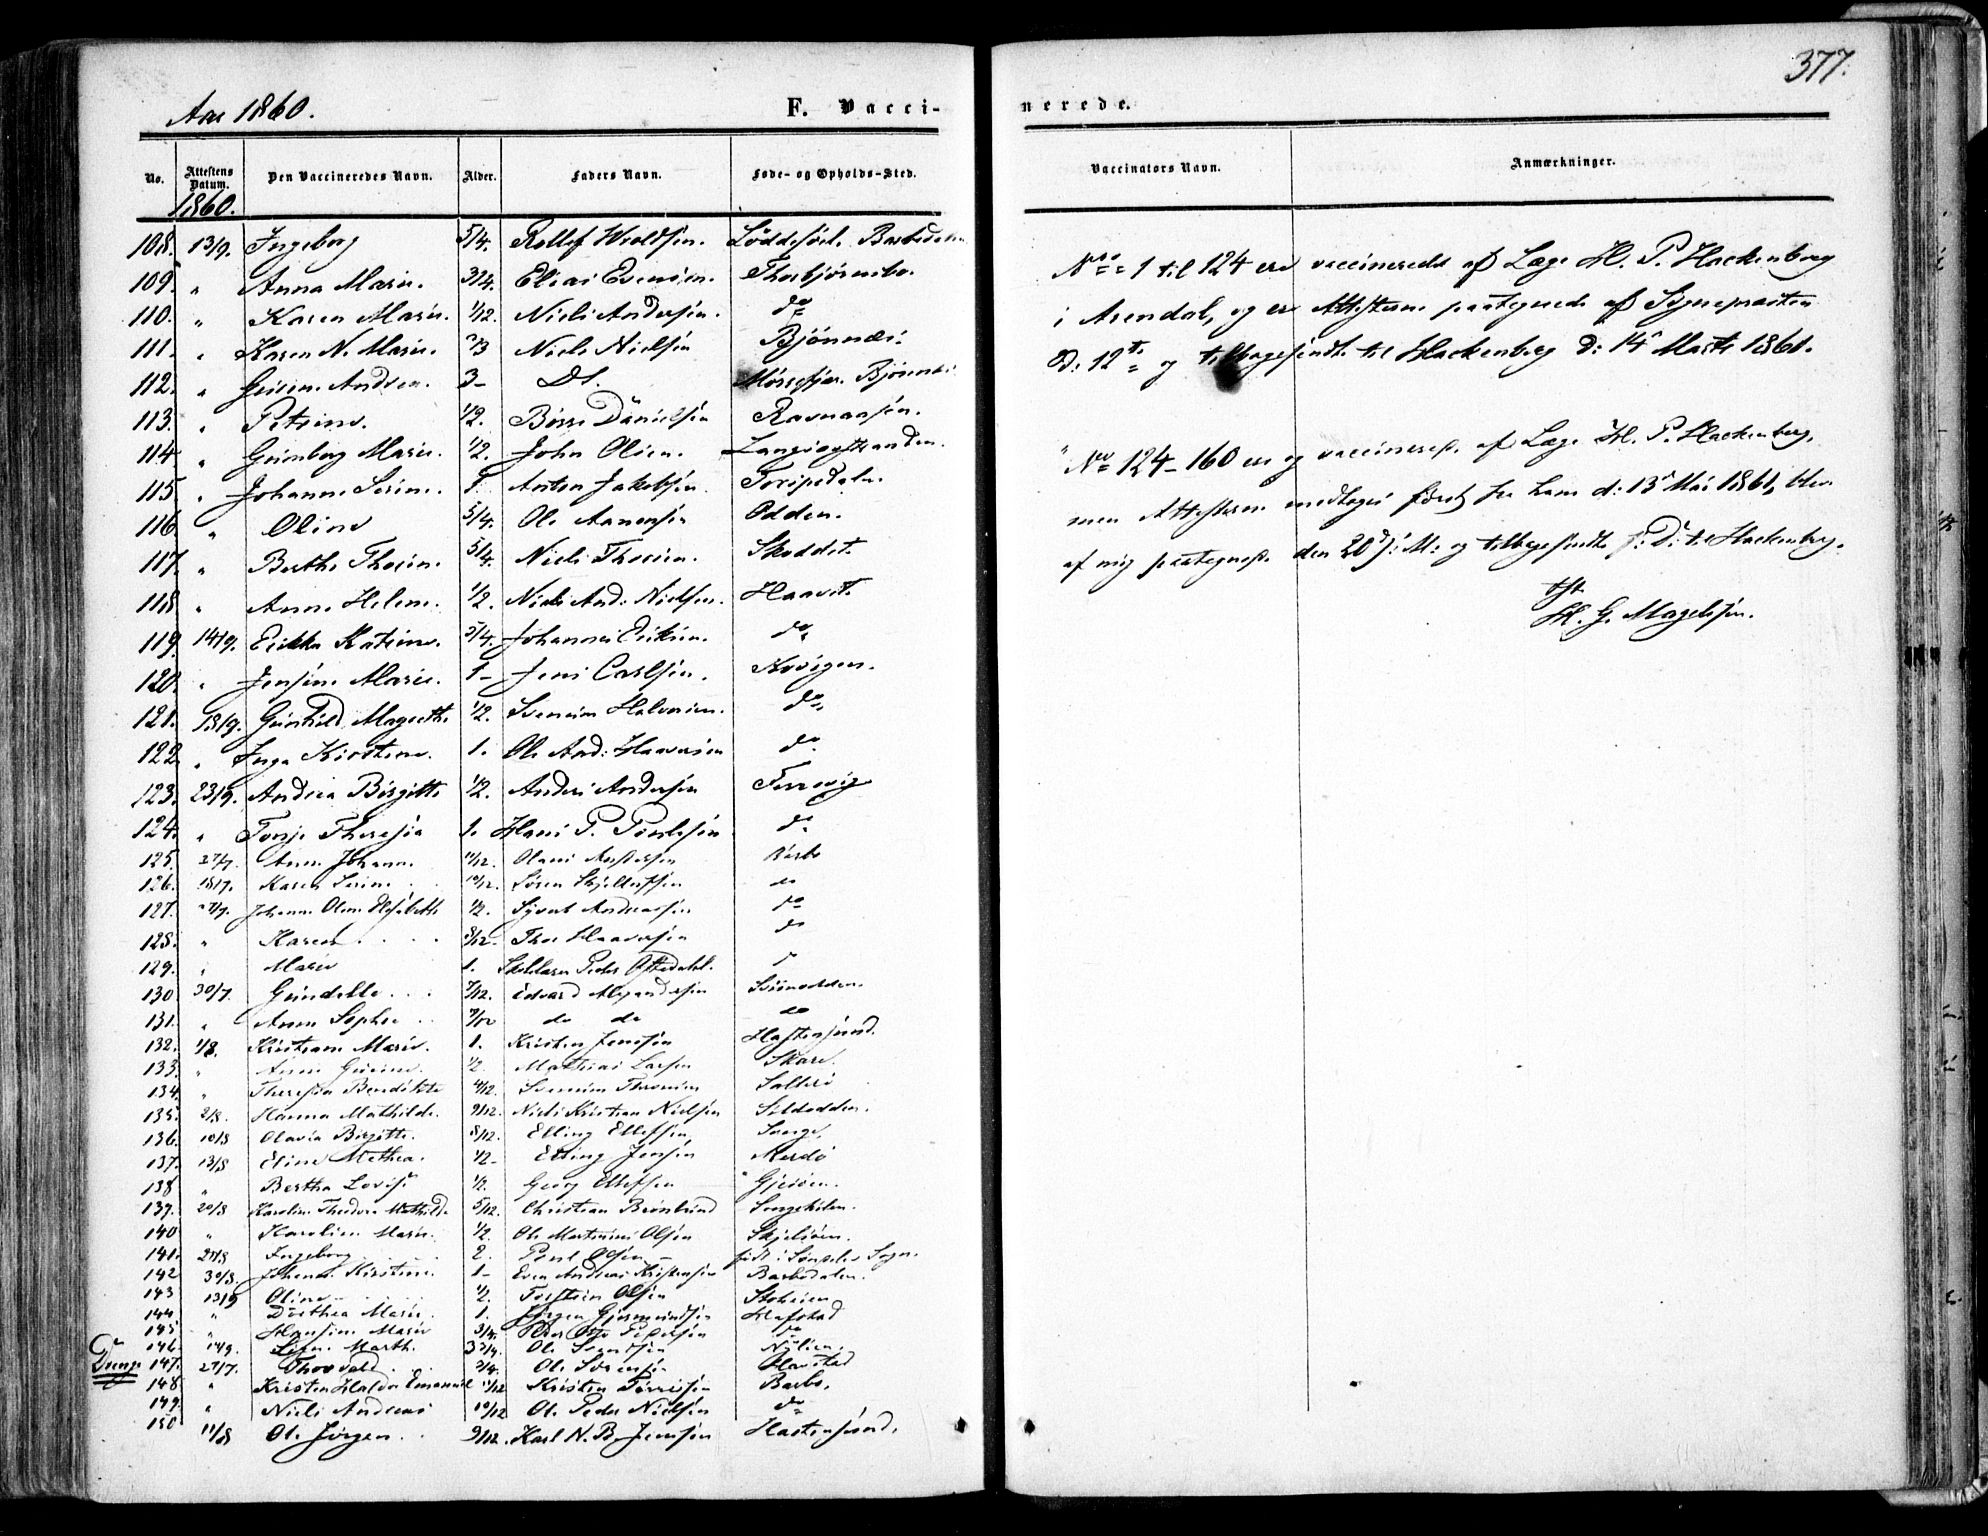 377.
Aar 1860.
F. Vacci-
nerede.
No. Attestens Datum. Den Vaccineredes Navn. Alder. Faders Navn. Føde- og Opholds-Sted.
Vaccinators Navn. Anmærkninger.
1860.
108. 13/9. Ingeborg 5/4. Rollef Wroldsen. Løddesøl. Barbodalen
109. " Anna Marie. 3/4. Elias Evensen. Thorbjørnsbo.
110. " Karen Marie. 1/12. Niels Andersen. do
111. " Karen N. Marie. 2/3 Niels Nielsen Bjønnæs.
112. " Gusine Andrea. 3- Ds. Bjønnæs
113. " Petrine. 1/2. Børre Danielsen Ravnaasen.
114 " Gunborg Marie. 1/2. John Olsen. Langsæstranden.
115. " Johanne Serine. 1. Anton Jakobsen. Torsipedalen.
116. " Oline 5/4. Ole Aanensen Odden.
117. " Berthe Thorine. 5/4. Niels Thorsen. Skuddet.
118 " Anne Helene. 1/2. Niels And: Nielsen. Haavet.
119. 14/9. Erikka Katrine. 5/4. Johannes Eriksen. do
120. " Jensine Marie. 1- Jens Carlsen. Kvigen.
121. 18/9. Gunhild Magrethe 1/2. Svenum Halvorsen. do
122. " Inga Kirstine. 1. Ole And: Haaversen do
123. 23/9. Andrea Birgitte 1/2. Anders Andersen Torrevig
124. " Tonje Theresia 1. Hans P. Poulsen do
125. 27/7. Anne Johanne 11/12. Olaus Andersen Barbo
126. 18/7. Karen Serine 10/12. Søren Skjelleffsen do
127. 27/7. Johanne Oline Elisabeth 1/2. Syvert Andreassen do
128. " Karen 8/12. Thor Haaversen do
129. " Marie 1. Peder Oftedahl.
130 30/7. Gundelle 7/12. Edvard Alexandersen Svinodden.
131. " Anne Sophie 7/12 do do do
132. 1/8. Kristiane Marie. 1. Kristen Jensen Hastensund.
133. " Anne Gurine. 1/2 Mathias Larsen Skare.
134. " Theresia Benedikte 4/12 Svenum Thronsen Salterø
135. 2/8. Hanna Mathilde. 9/12. Niels Kristian Nielsen Sildodden.
136. 10/8 Olavia Birgitte. 8/12. Elling Ellefsen, Songe.
137. 13/8 Eline Methea. 1/2- Elling Jensen Merdø
138 " Bertha Lovise 1/2. Georg Ellefsen Gjesøen.
139. 20/8 Karoline Theodora Mathilde 5/12. Christian Brønlund Songekilen.
140 " Karoline Marie. 1/2. Ole Martinius Olsen Skjelsøen.
141. 27/8 Ingeborg 2. Poul Olsen født i Søndeløv Sogn.
142 30/8. Johanne Kirstine. 1- Even Andreas Kristensen Barbodalen.
143 13/9 Oline 1/2. Torsten Olsen Stokeien.
144 " Dorthea Marie. 1. Jørgen Gjermundsen Hafstad
145 " Hansine Marie 3/4. Peder Pedersen do
146. 14/9. Lefne Marth. 3 3/4. Ole Svendsen Nylien.
Drenge 147. 27/7. Thorvald 3/4. Ole Svensen Havstad
148 " Kristen Halvor Emanuel 11/12 Kristen Tørresen Barbo.
149. " Niels Andreas 10/12 Ole Peder Nielsen do
150 11/8 Ole Jørgen 9/12. Karl N. B. Jensen Hastensund.
Nro 1 til 124 ere vaccinerede af Læge H. P. Hackenberg
i Arendal, og er Attesterne paategnede af Sognepræsten
d: 12te og tilbagesendt til Hackenberg D: 14 Marts 1861.
Nro 124-160 ere og vaccinerede af Læge H. P. Hackenberg,
men Attesterne modtoges først fra ham d: 13 Mai 1861, blev
af mig paategnede den 20 s: M: og tilbagesendt s: D: til Hackenberg.
tst
H. G. Magelssen.